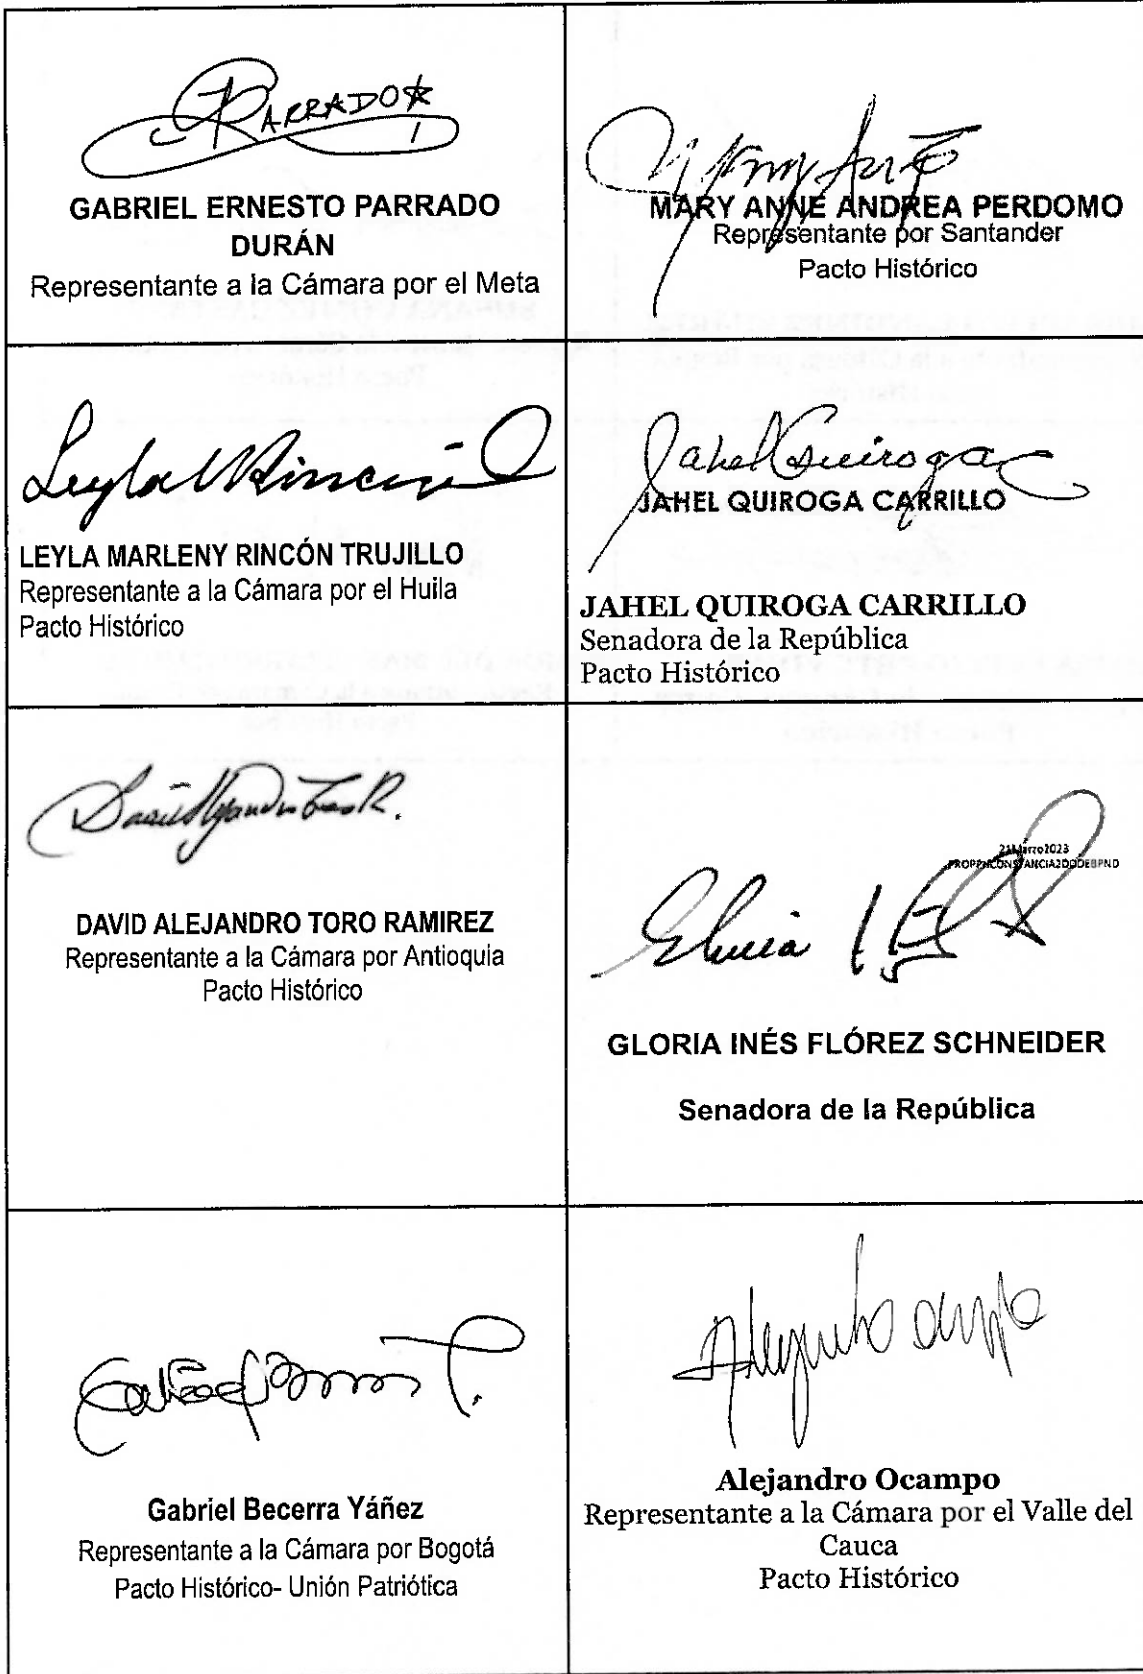 PARRADO
GABRIEL ERNESTO PARRADO
DURÁN
Representante a la Cámara por el Meta
MARY ANNE ANDREA PERDOMO
Representante por Santander
Pacto Histórico
Leyla Rincón
LEYLA MARLENY RINCÓN TRUJILLO
Representante a la Cámara por el Huila
Pacto Histórico
Jahel Quiroga
JAHEL QUIROGA CARRILLO
JAHEL QUIROGA CARRILLO
Senadora de la República
Pacto Histórico
David Alejandro Toro R.
DAVID ALEJANDRO TORO RAMIREZ
Representante a la Cámara por Antioquia
Pacto Histórico
21Marzo2023
GLORIA INÉS FLÓREZ SCHNEIDER
Senadora de la República
Gabriel Becerra Yáñez
Representante a la Cámara por Bogotá
Pacto Histórico- Unión Patriótica
Alejandro Ocampo
Alejandro Ocampo
Representante a la Cámara por el Valle del
Cauca
Pacto Histórico